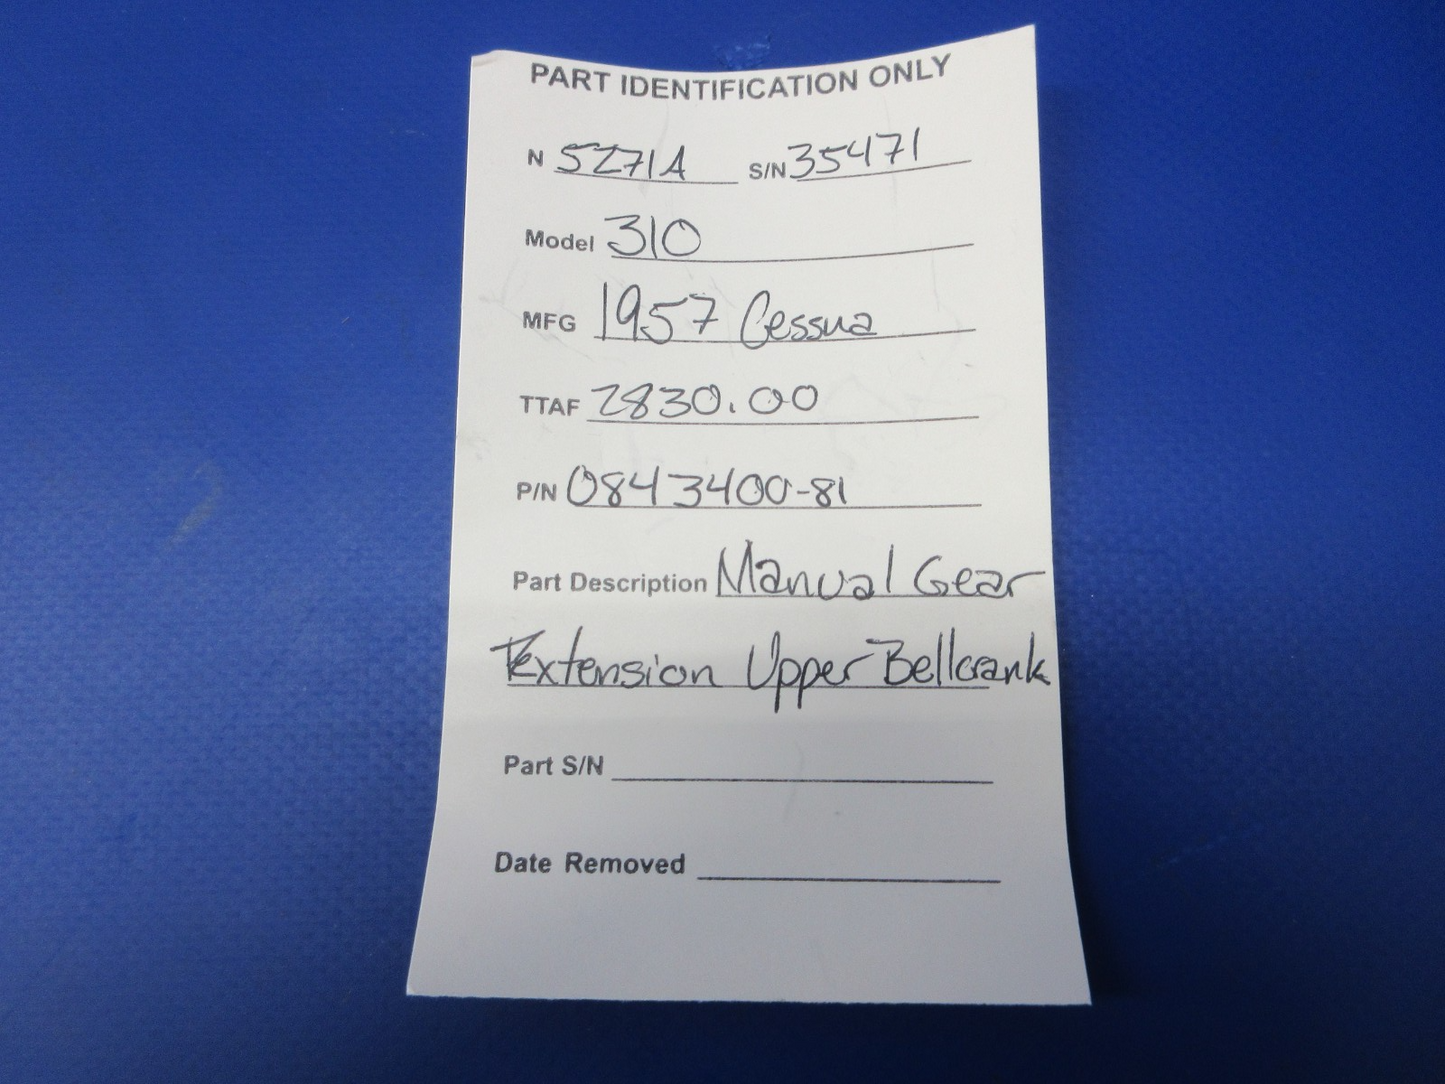 PART IDENTIFICATION ONLY
N 5271A S/N 35471
Model 310
MFG 1957 Cessna
TTAF 2830.00
P/N 0843400-81
Part Description Manual Gear
Extension Upper Bellcrank
Part S/N
Date Removed